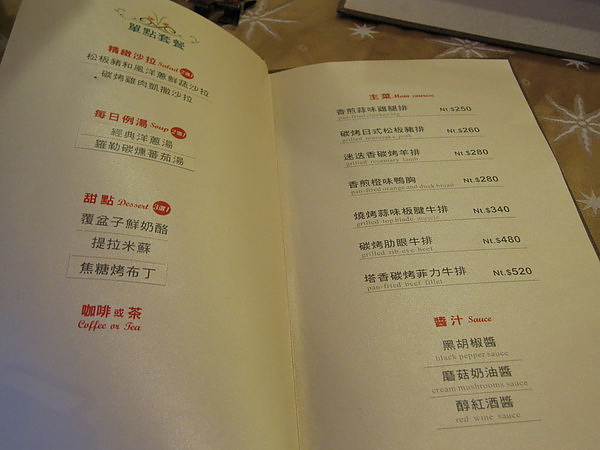 單點套餐
精緻沙拉 Salad 2選1
松板豬和風洋蔥鮮蔬沙拉
碳烤雞肉凱撒沙拉
每日例湯 Soup 2選1
經典洋蔥湯
羅勒碳燻蕃茄湯
甜點 Dessert 3選1
覆盆子鮮奶酪
提拉米蘇
焦糖烤布丁
咖啡或茶
Coffee or Tea
主菜 Main courses
香煎蒜味雞腿排 Nt.$250
pan-fried chicken leg
碳烤日式松板豬排 Nt.$260
迷迭香碳烤羊排 Nt.$280
grilled rosemary lamb
香煎橙味鴨胸 Nt.$280
pan-fried orange and duck bread
燒烤蒜味板腱牛排 Nt.$340
grilled top blade muscle
碳烤肋眼牛排 Nt.$480
grilled rib eye beef
塔香碳烤菲力牛排 Nt.$520
pan-fried beef fillet
醬汁 Sauce
黑胡椒醬
black pepper sauce
磨菇奶油醬
cream mushrooms sauce
醇紅酒醬
red wine sauce